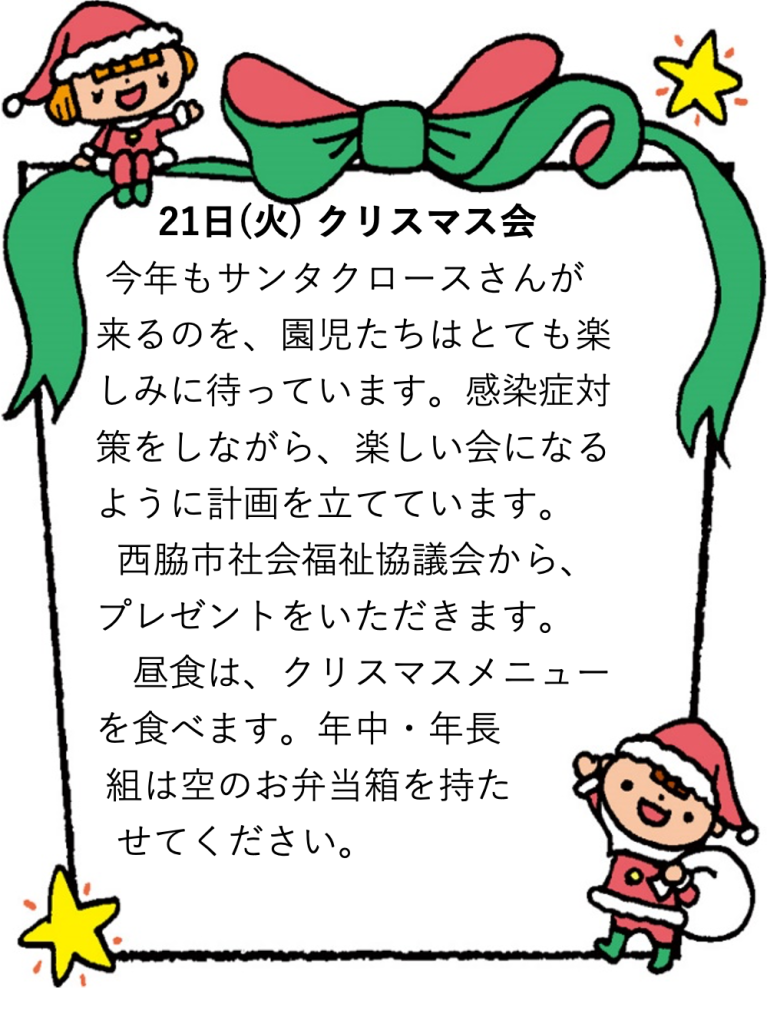 21日(火) クリスマス会
今年もサンタクロースさんが
来るのを、園児たちはとても楽
しみに待っています。感染症対
策をしながら、楽しい会になる
ように計画を立てています。
西脇市社会福祉協議会から、
プレゼントをいただきます。
昼食は、クリスマスメニュー
を食べます。年中・年長
組は空のお弁当箱を持た
せてください。